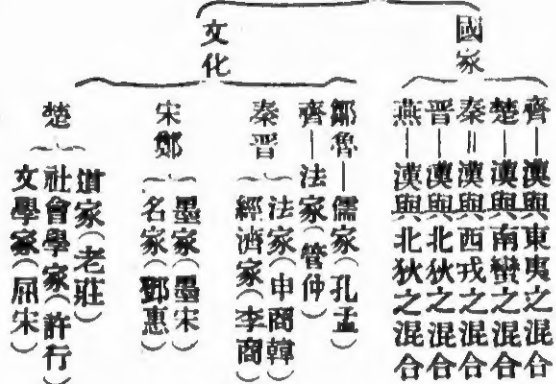 國家
齊—漢與東夷之混合
楚—漢與南蠻之混合
秦=漢與西戎之混合
晋—漢與北狄之混合
燕—漢與北狄之混合
文化
鄒魯—儒家(孔孟)
齊—法家(管仲)
秦晋
法家(申商韓)
經濟家(李商)
宋鄭
墨家(墨宋)
名家(鄧惠)
楚
道家(老莊)
社會學家(許行)
文學家(屈宋)